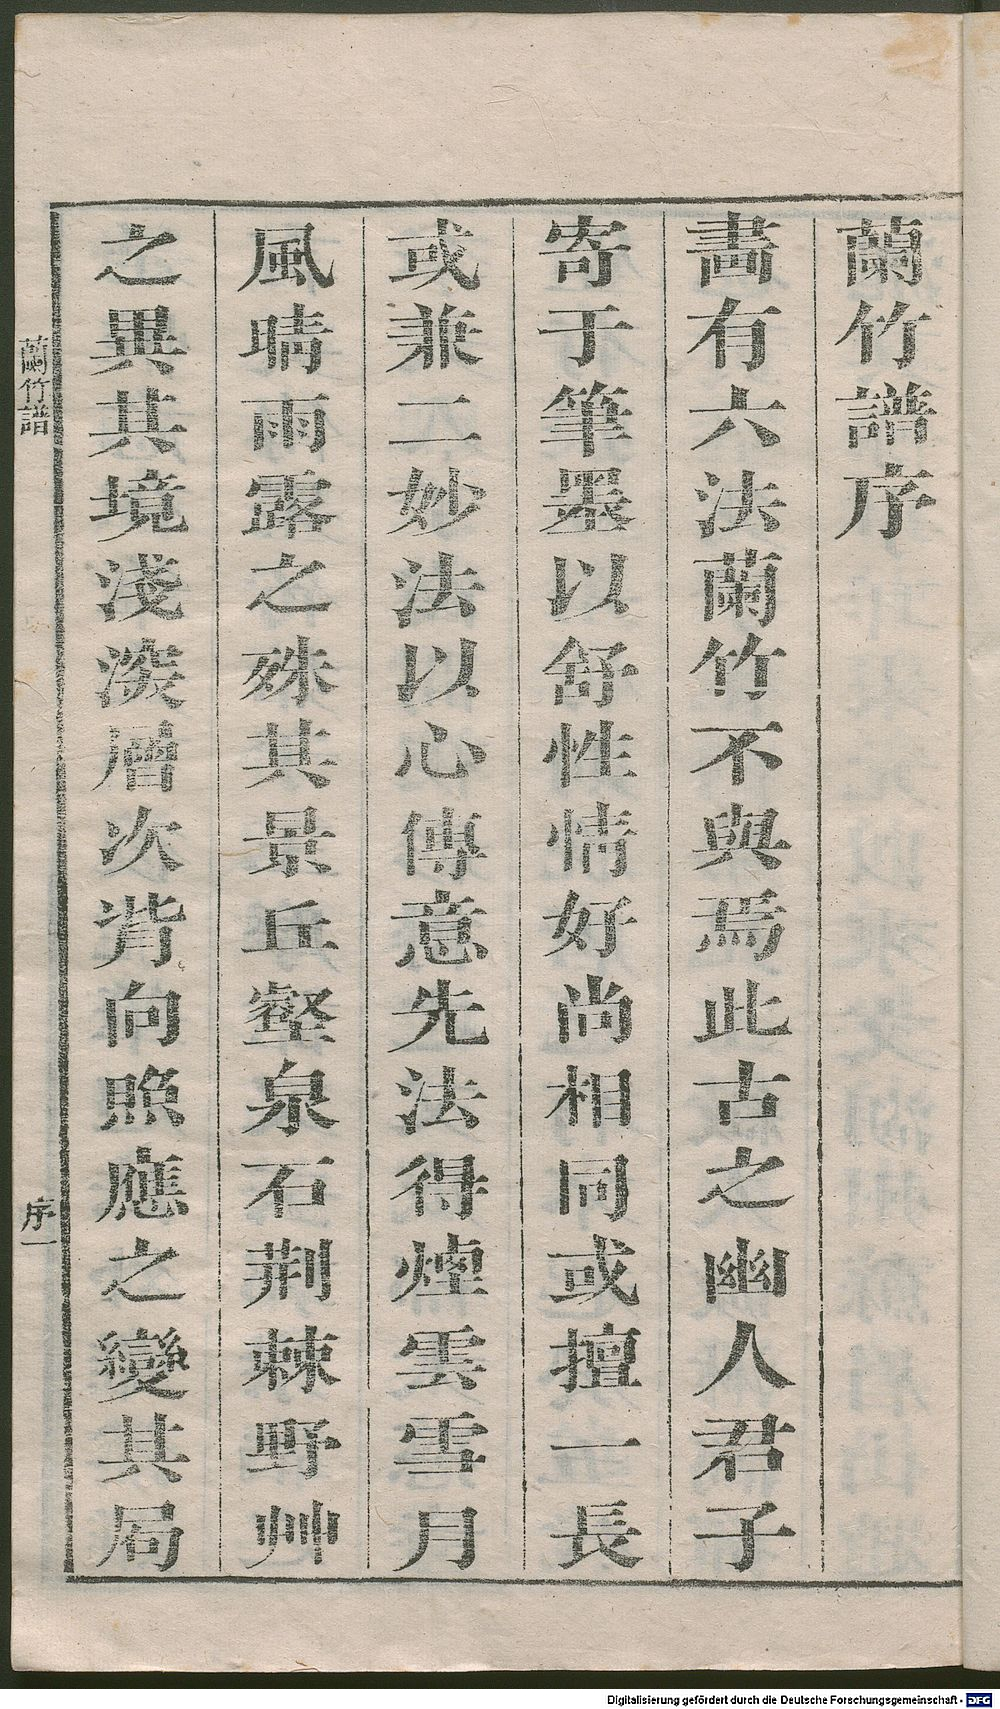 蘭竹譜序
畵有六法蘭竹不與焉此古之幽人君子
寄于筆墨以舒性情好尚相同或擅一長
或兼二妙法以心傳意先法得煙雲雪月
風晴雨露之殊其景丘壑泉石荆棘野艸
之異其境淺深層次背向照應之變其局
蘭竹譜
序一
Digitalisierung gefördert durch die Deutsche Forschungsgemeinschaft - DFG